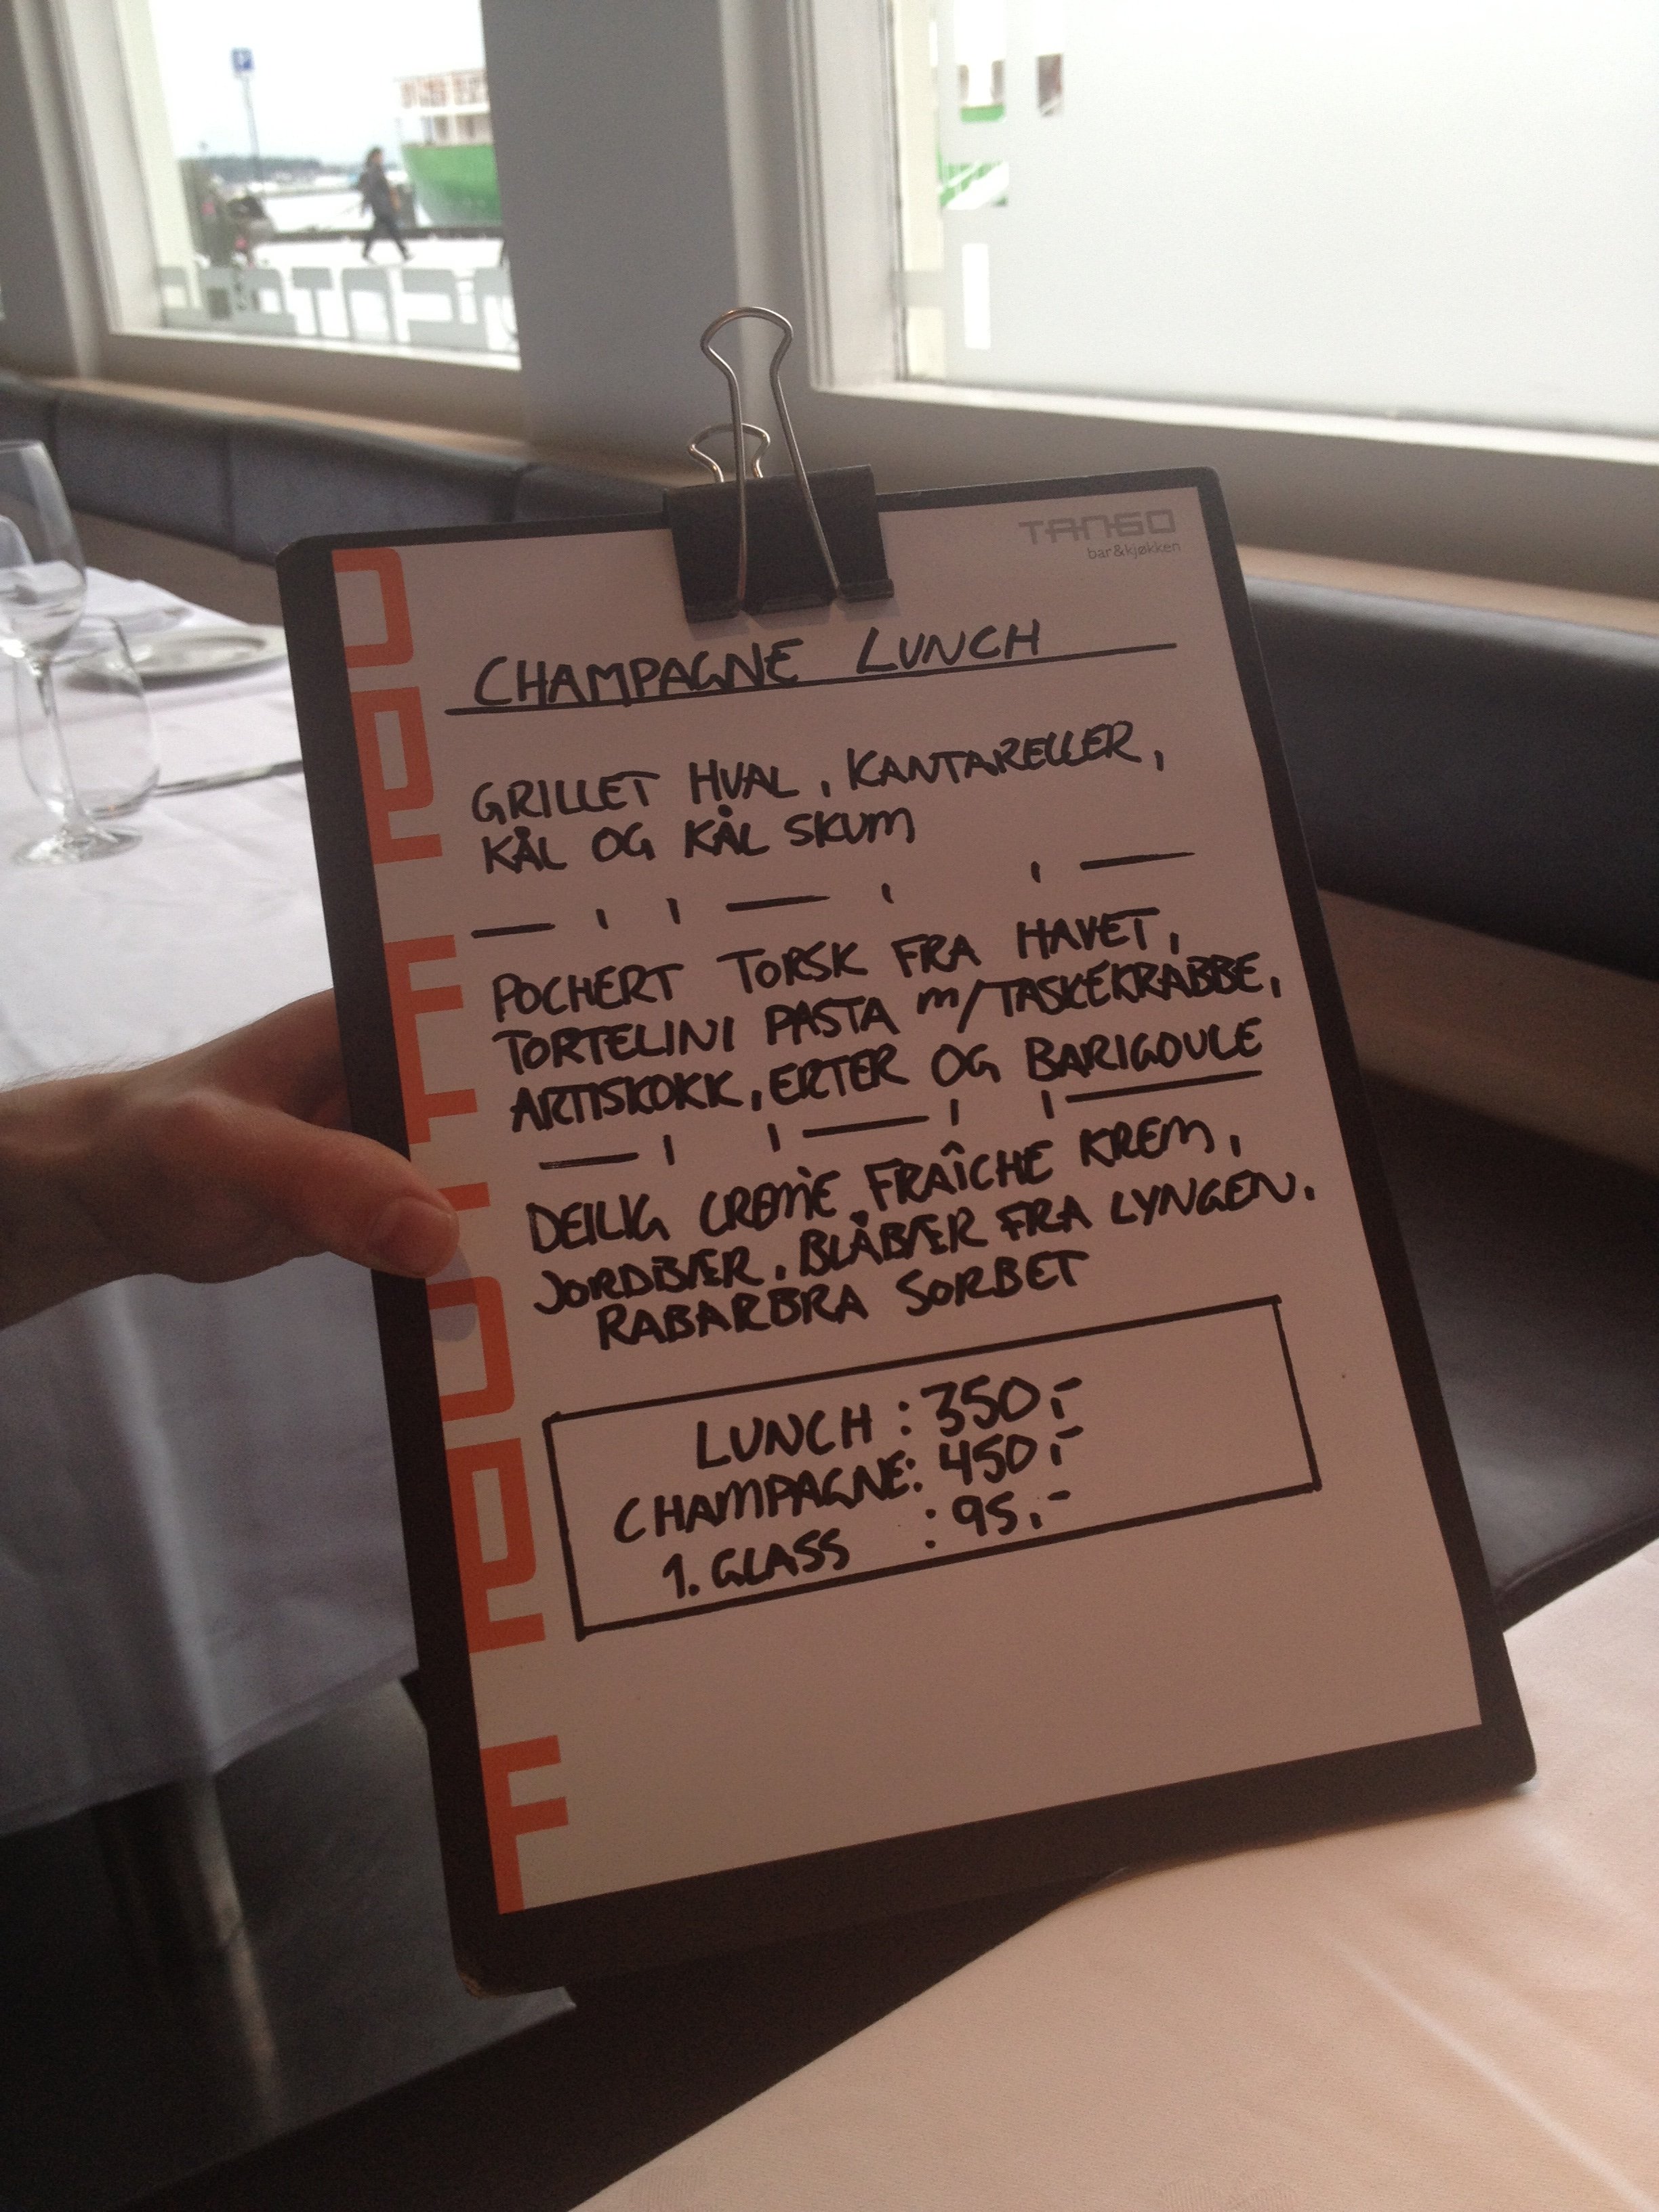 TANGO
bar&kjøkken
CHAMPAGNE LUNCH
GRILLET HVAL, KANTARELLER,
KÅL OG KÅL SKUM
POCHERT TORSK FRA HAVET,
TORTELINI PASTA m/TASKEKRABBE,
ARTISKOKK, ERTER OG BARIGOULE
DEILIG CREMÈ FRAÎCHE KREM,
JORDBÆR, BLÅBÆR FRA LYNGEN.
RABARBRA SORBET
LUNCH : 350,-
CHAMPAGNE: 450,-
1. GLASS : 95,-